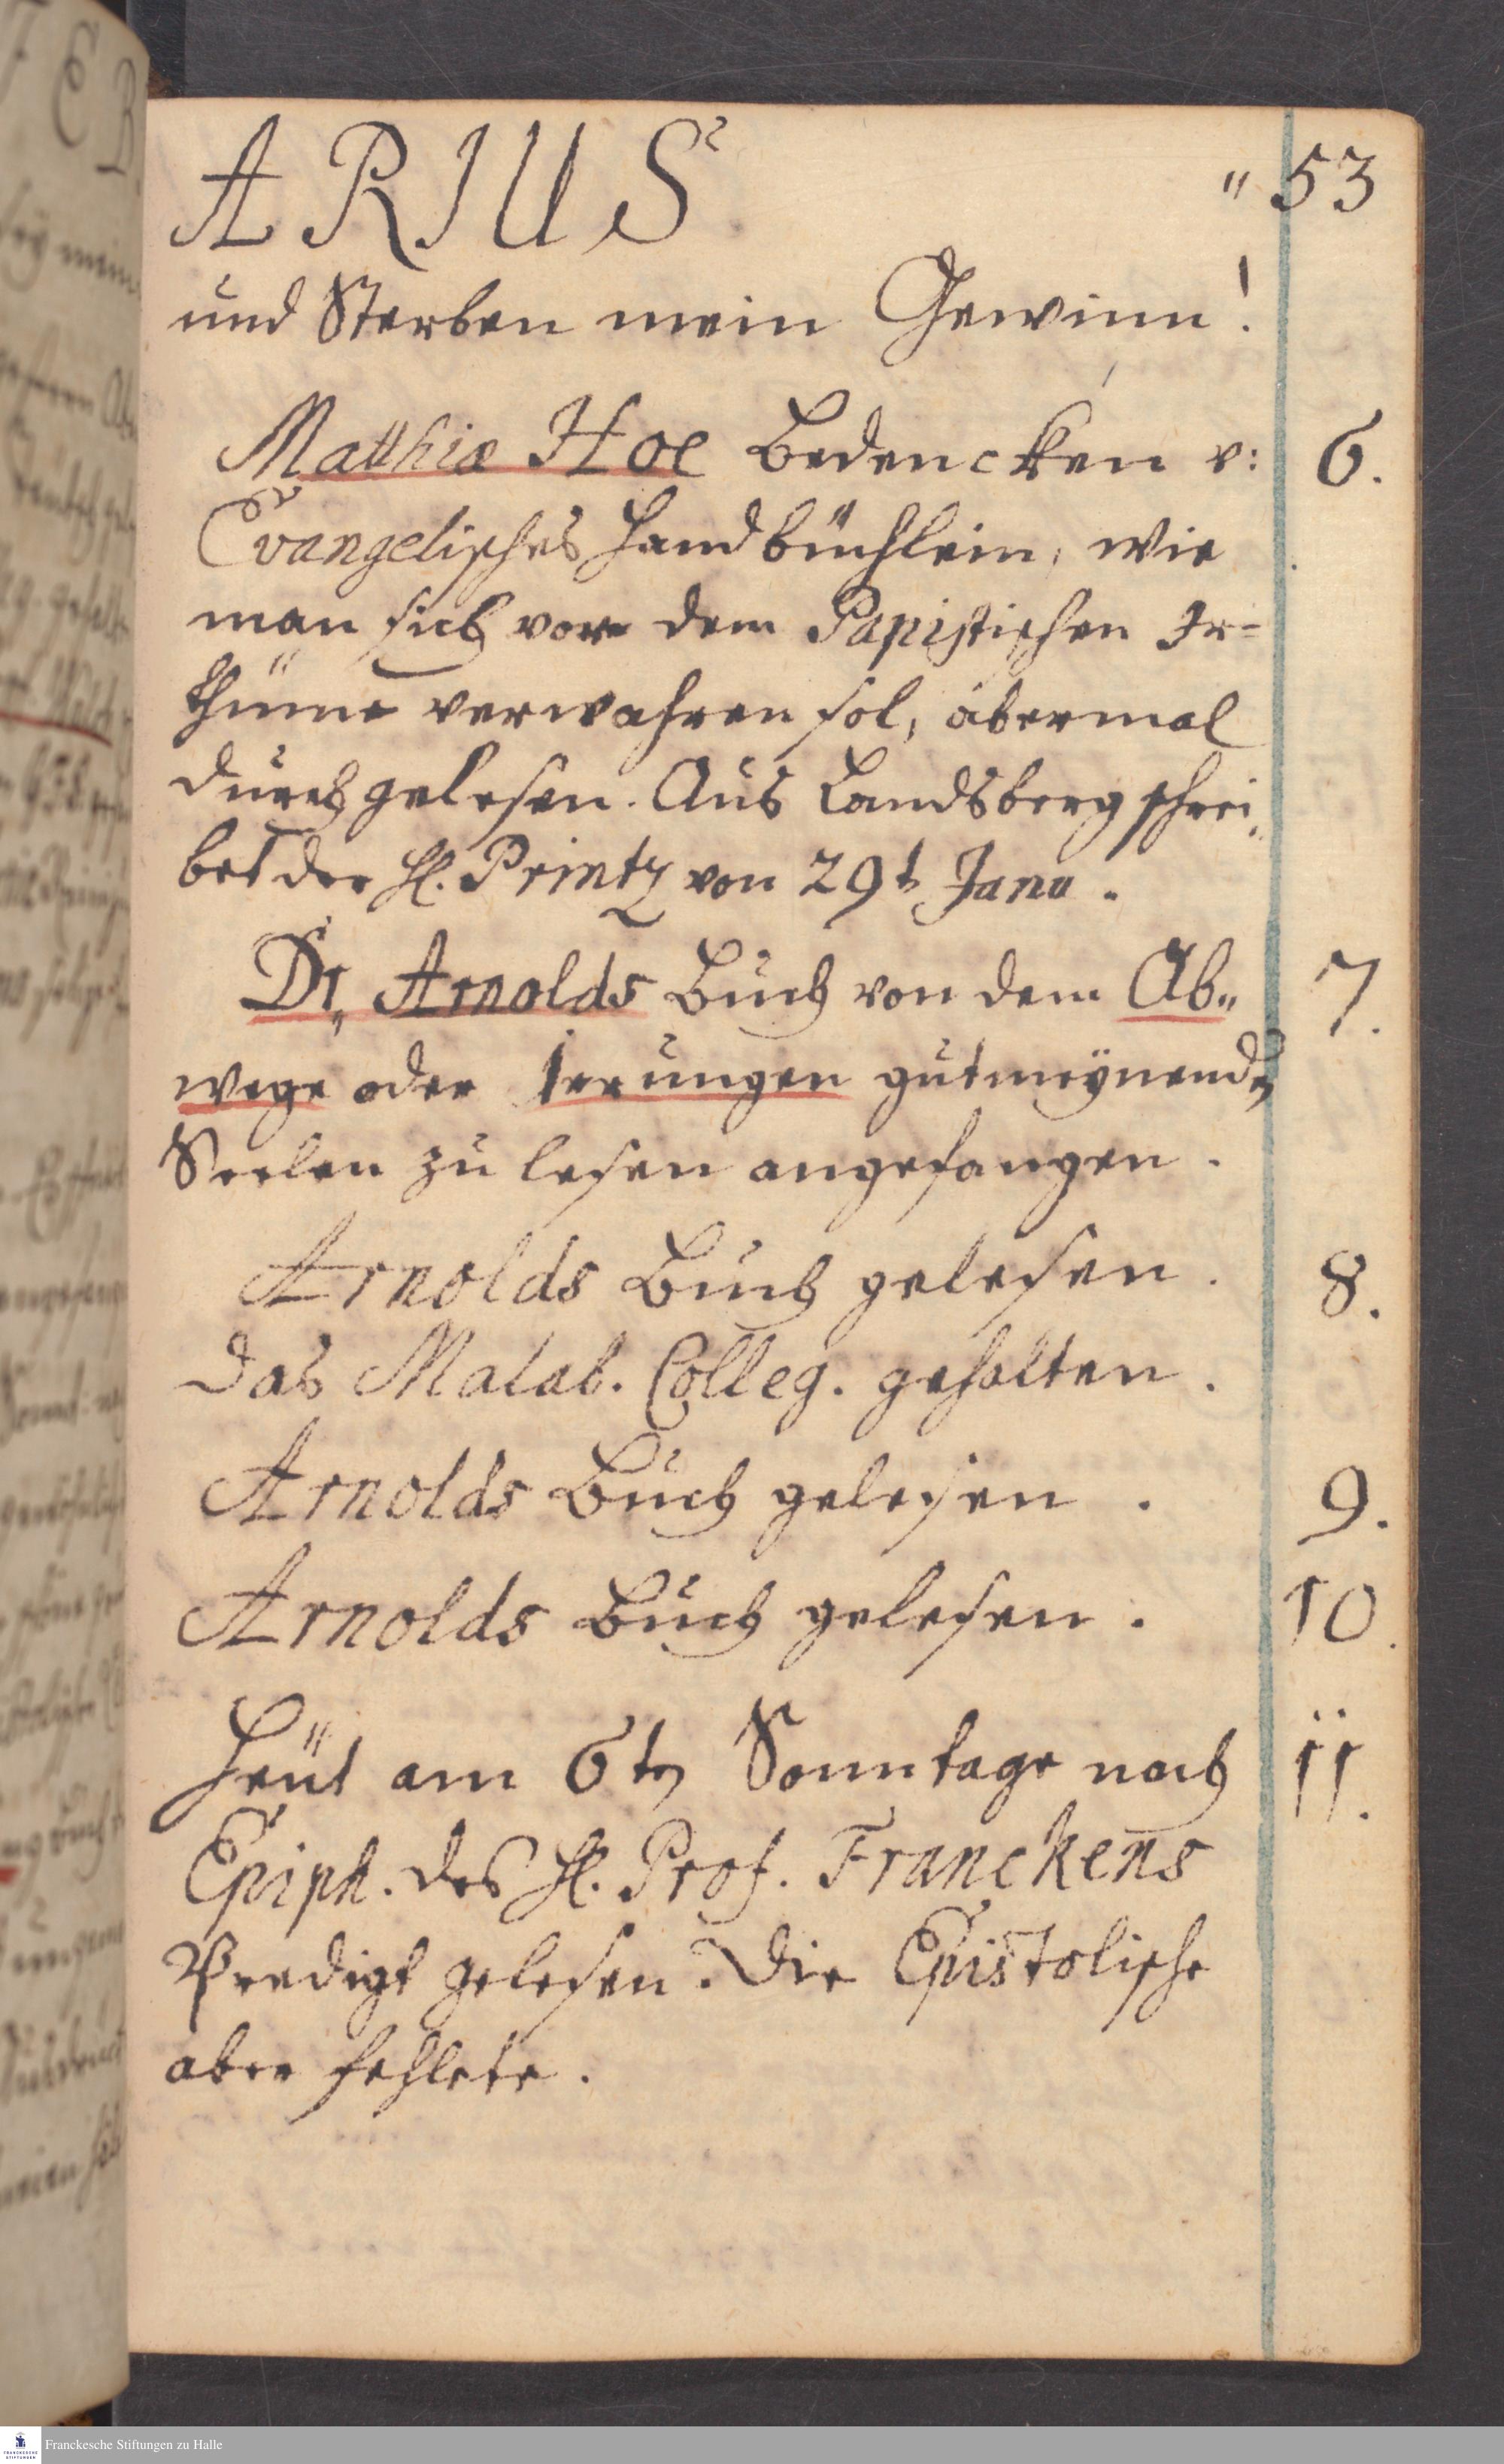 ARIUS
" 53
und Sterben mein Gewinn!
Matthiæ Hoe Bedencken v: 6.
Evangelisches Handbüchlein, wie
man sich vor dem Papistischen Ir=
thüme verwahren sol, abermal
durchgelesen. Aus Landsberg schrei„
bet der H. Printz von 29t Janu.
Dr„ Arnolds Buch von dem Ab„ 7.
wege oder Irrungen gutmeÿnenden
Seelen zu lesen angefangen.
Arnolds Buch gelesen. 8.
das Malab. Colleg. gehalten.
Arnolds Buch gelesen. 9.
Arnolds Buch gelesen. 10.
Heüt am 6ten Sonntage nach 11.
Epiph. des H. Prof. Franckens
Predigt gelesen. Die Epistolische
aber fehlete.
Franckesche Stiftungen zu Halle